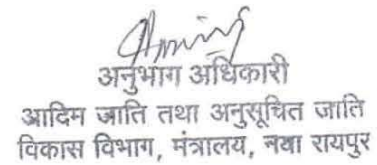 अनुभाग अधिकारी
आदिम जाति तथा अनुसूचित जाति
विकास विभाग, मंत्रालय, नवा रायपुर